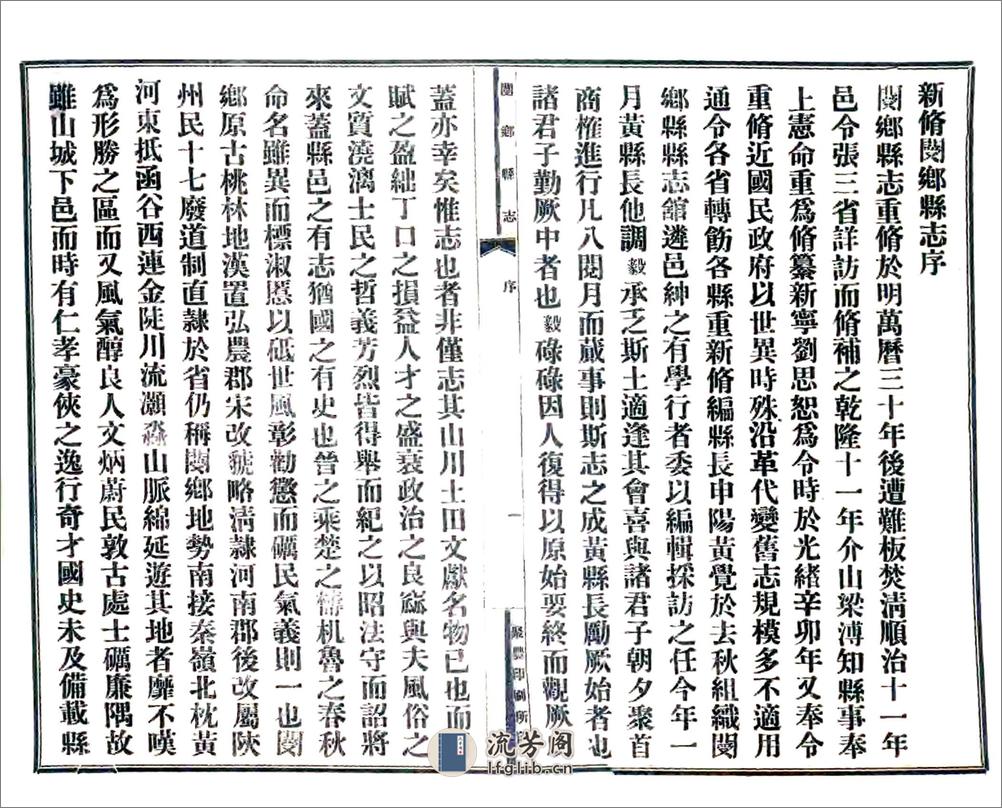 新脩閿鄉縣志序
閿鄉縣志重脩於明萬曆三十年後遭難板焚淸順治十一年
邑令張三省詳訪而脩補之乾隆十一年介山梁溥知縣事奉
上憲命重爲脩纂新寧劉思恕爲令時於光緖辛卯年又奉令
重脩近國民政府以世異時殊沿革代變舊志規模多不適用
通令各省轉飭各縣重新脩編縣長申陽黃覺於去秋組織閿
鄉縣縣志舘遴邑紳之有學行者委以編輯採訪之任今年一
月黃縣長他調毅承乏斯土適逢其會喜與諸君子朝夕聚首
商榷進行凡八閱月而蕆事則斯志之成黃縣長勵厥始者也
諸君子勤厥中者也毅碌碌因人復得以原始要終而觀厥
閿鄉縣志
序
一
聚豐印刷所
蓋亦幸矣惟志也者非僅志其山川土田文獻名物已也而
賦之盈絀丁口之損益人才之盛衰政治之良窳與夫風俗之
文質澆漓士民之哲義芳烈皆得舉而紀之以昭法守而詔將
來蓋縣邑之有志猶國之有史也晉之乘楚之檮杌魯之春秋
命名雖異而標淑慝以砥世風彰勸懲而礪民氣義則一也閿
鄉原古桃林地漢置弘農郡宋改虢略淸隸河南郡後改屬陝
州民十七廢道制直隸於省仍稱閿鄉地勢南接秦嶺北枕黃
河東抵函谷西連金陡川流灝淼山脈綿延遊其地者靡不嘆
爲形勝之區而又風氣醇良人文炳蔚民敦古處士礪廉隅故
雖山城下邑而時有仁孝豪俠之逸行奇才國史未及備載縣
流芳閣
lfglib.cn